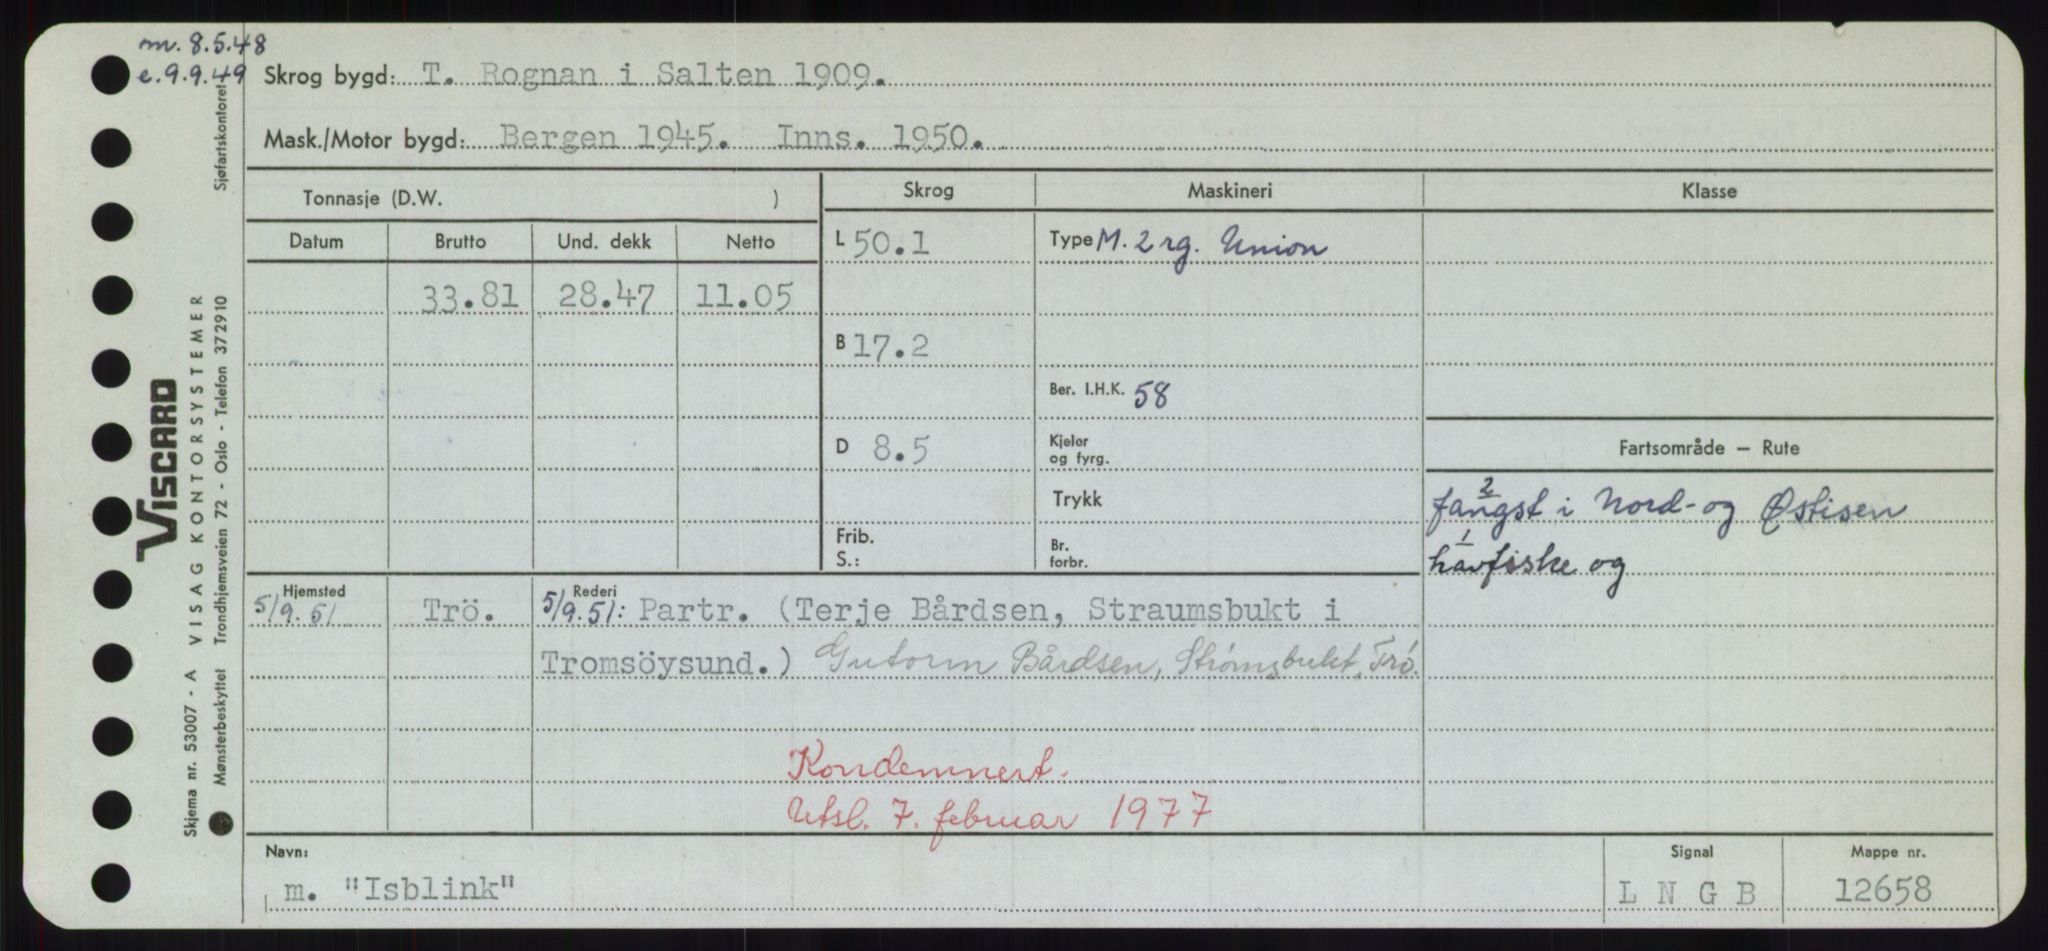 m. 8.5.48
e. 9.9.49
Skrog bygd: T. Rognan i Salten 1909.
Mask./Motor bygd: Bergen 1945. Inns. 1950.
Tonnasje (D.W. )
Skrog
Maskineri
Klasse
Datum
Brutto
Und. dekk
Netto
33.81
28.47
11.05
L 50.1
B 17.2
D 8.5
Frib.
S.:
Type M. 2 rg. Union
Ber. I.H.K. 58
Kjeler
og fyrg.
Trykk
Br.
forbr.
Fartsområde — Rute
2
fangst i Nord- og Østisen
1
havfiske og
Hjemsted
5/9.51
Trö.
Rederi
5/9.51: Partr. (Terje Bårdsen, Straumsbukt i
Tromsöysund.) Gutorm Bårdsen, Strømsbukt, Trö.
Kondemnert.
Utsl. 7. februar 1977
Navn:
m. "Isblink"
Signal
L N G B
Mappe nr.
12658
VISCARD
VISAG KONTORSYSTEMER
Skjema nr. 53007 - A
Sjøfartskontoret
Mønsterbeskyttet Trondhjemsveien 72 - Oslo - Telefon 372910